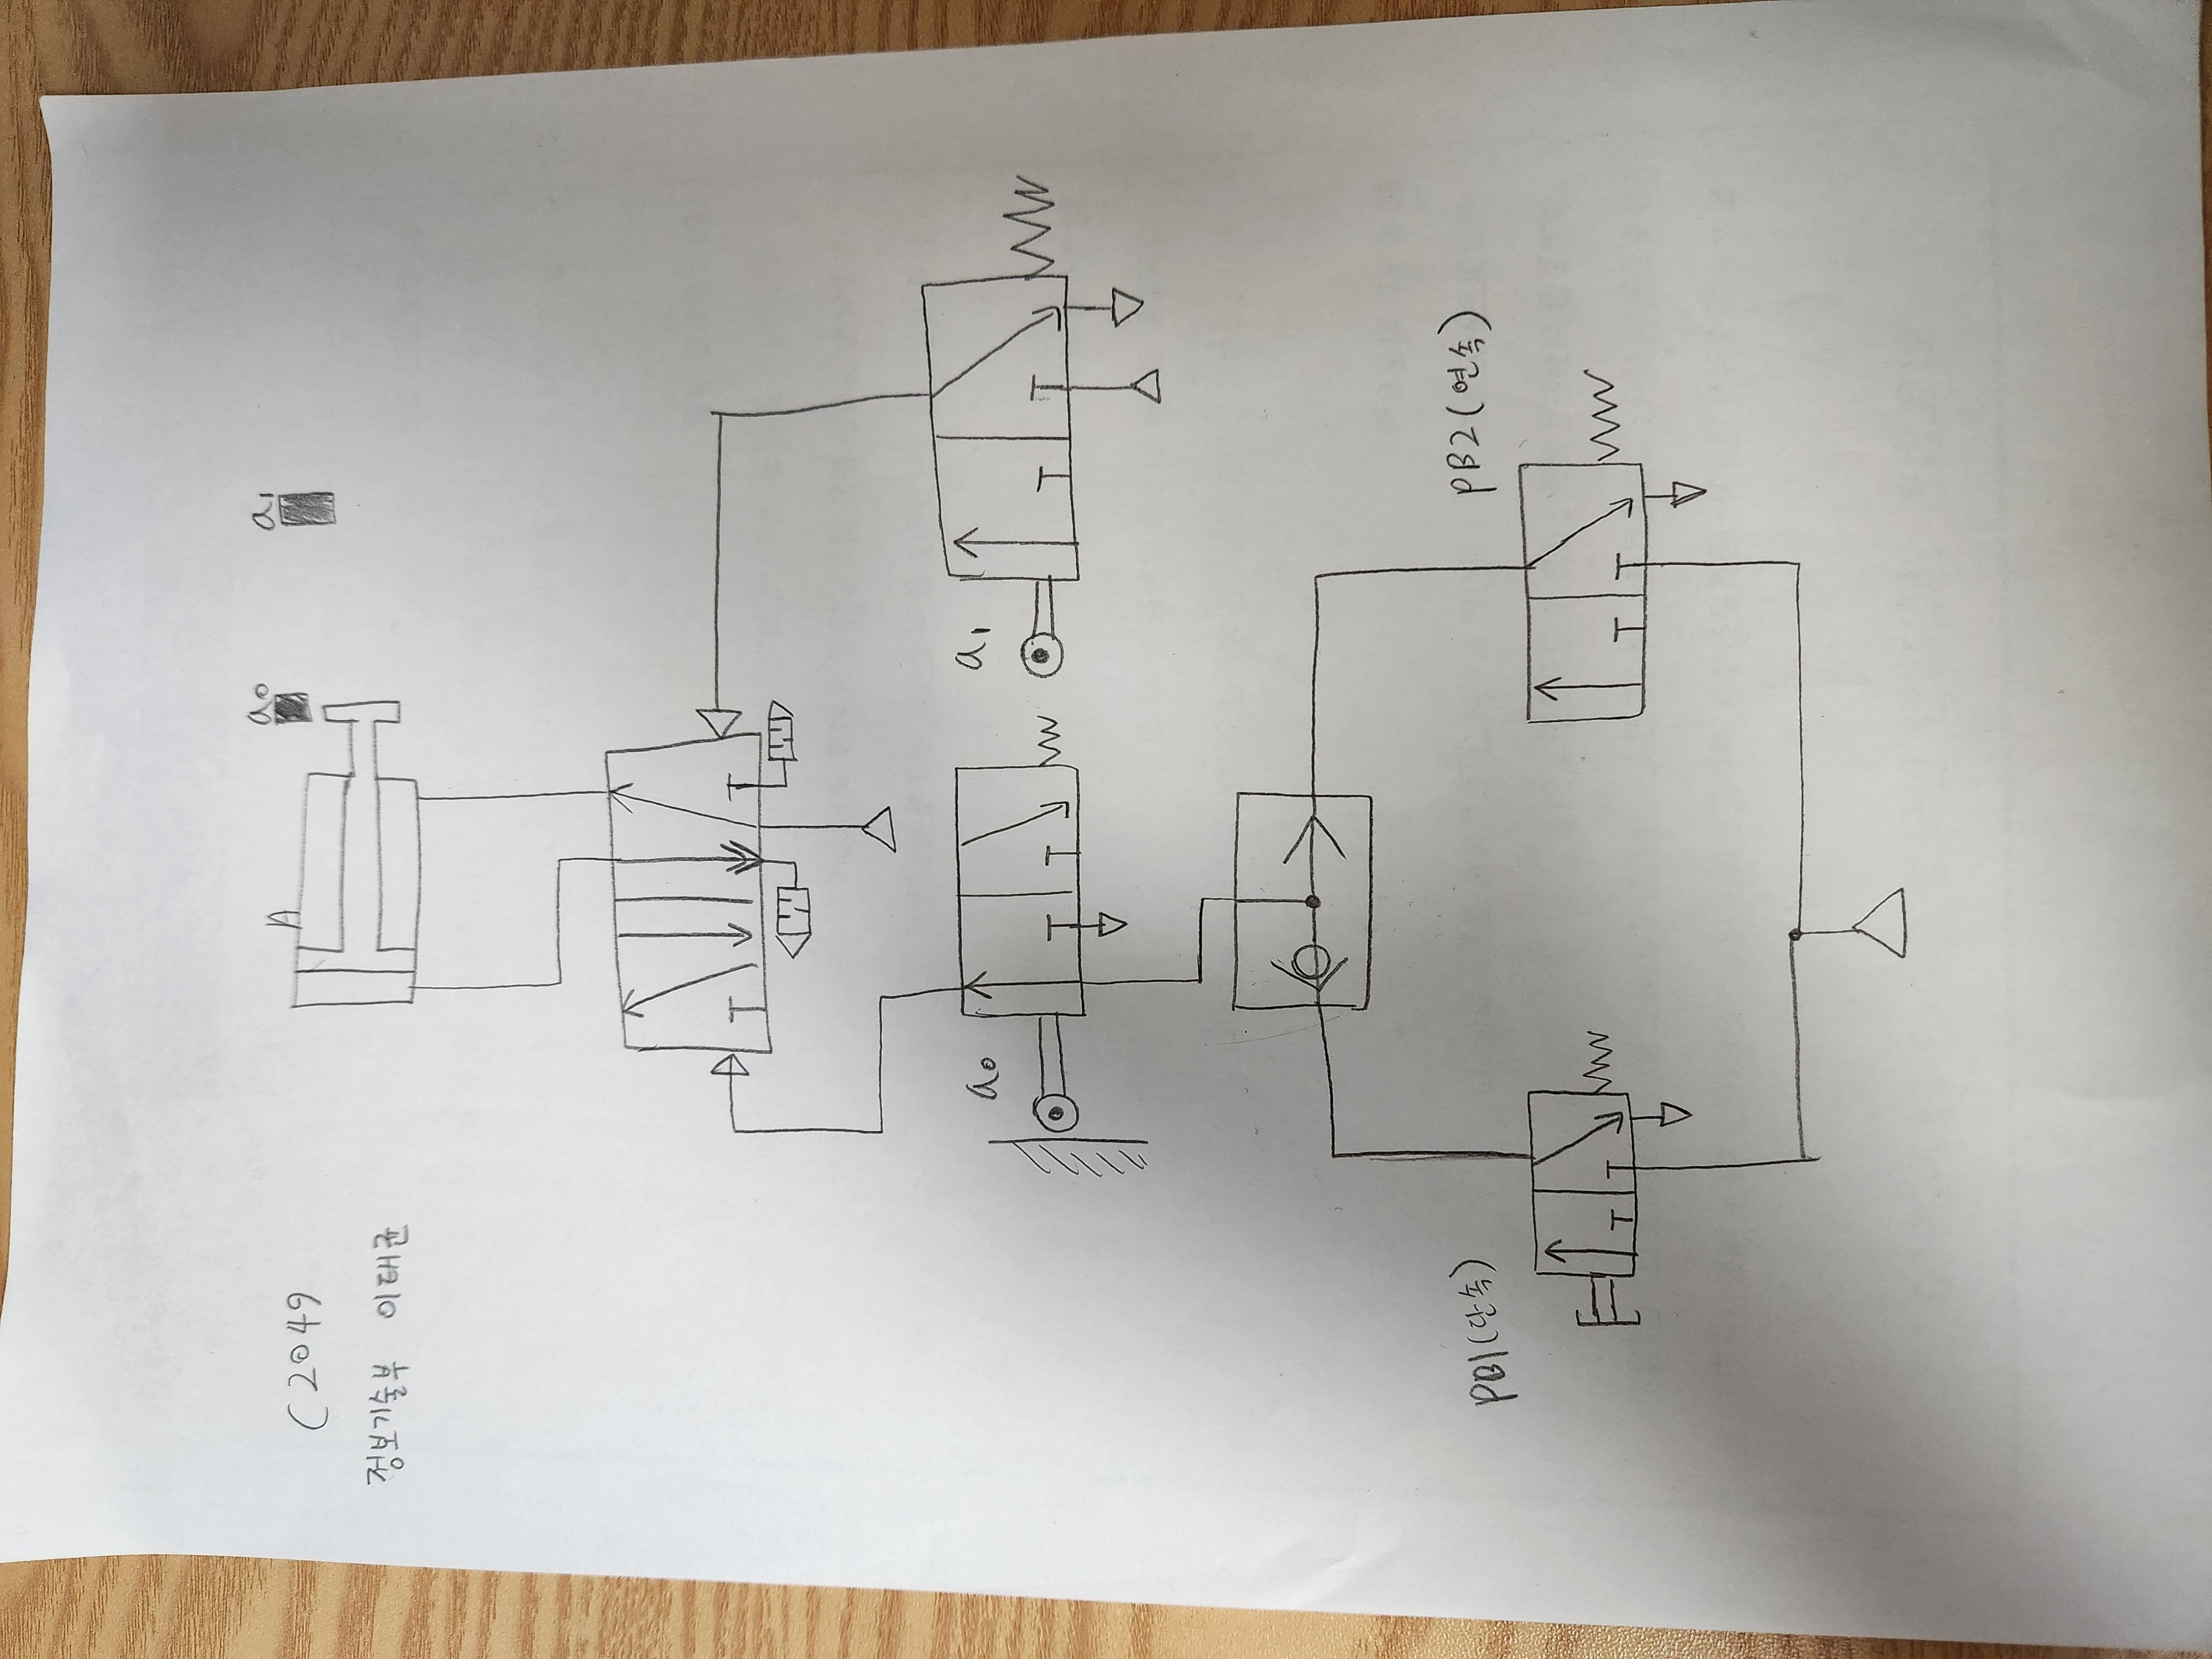 C2049
정보기술부 이태균
A
a0
a1
a0
a1
PB1(단속)
PB2(연속)